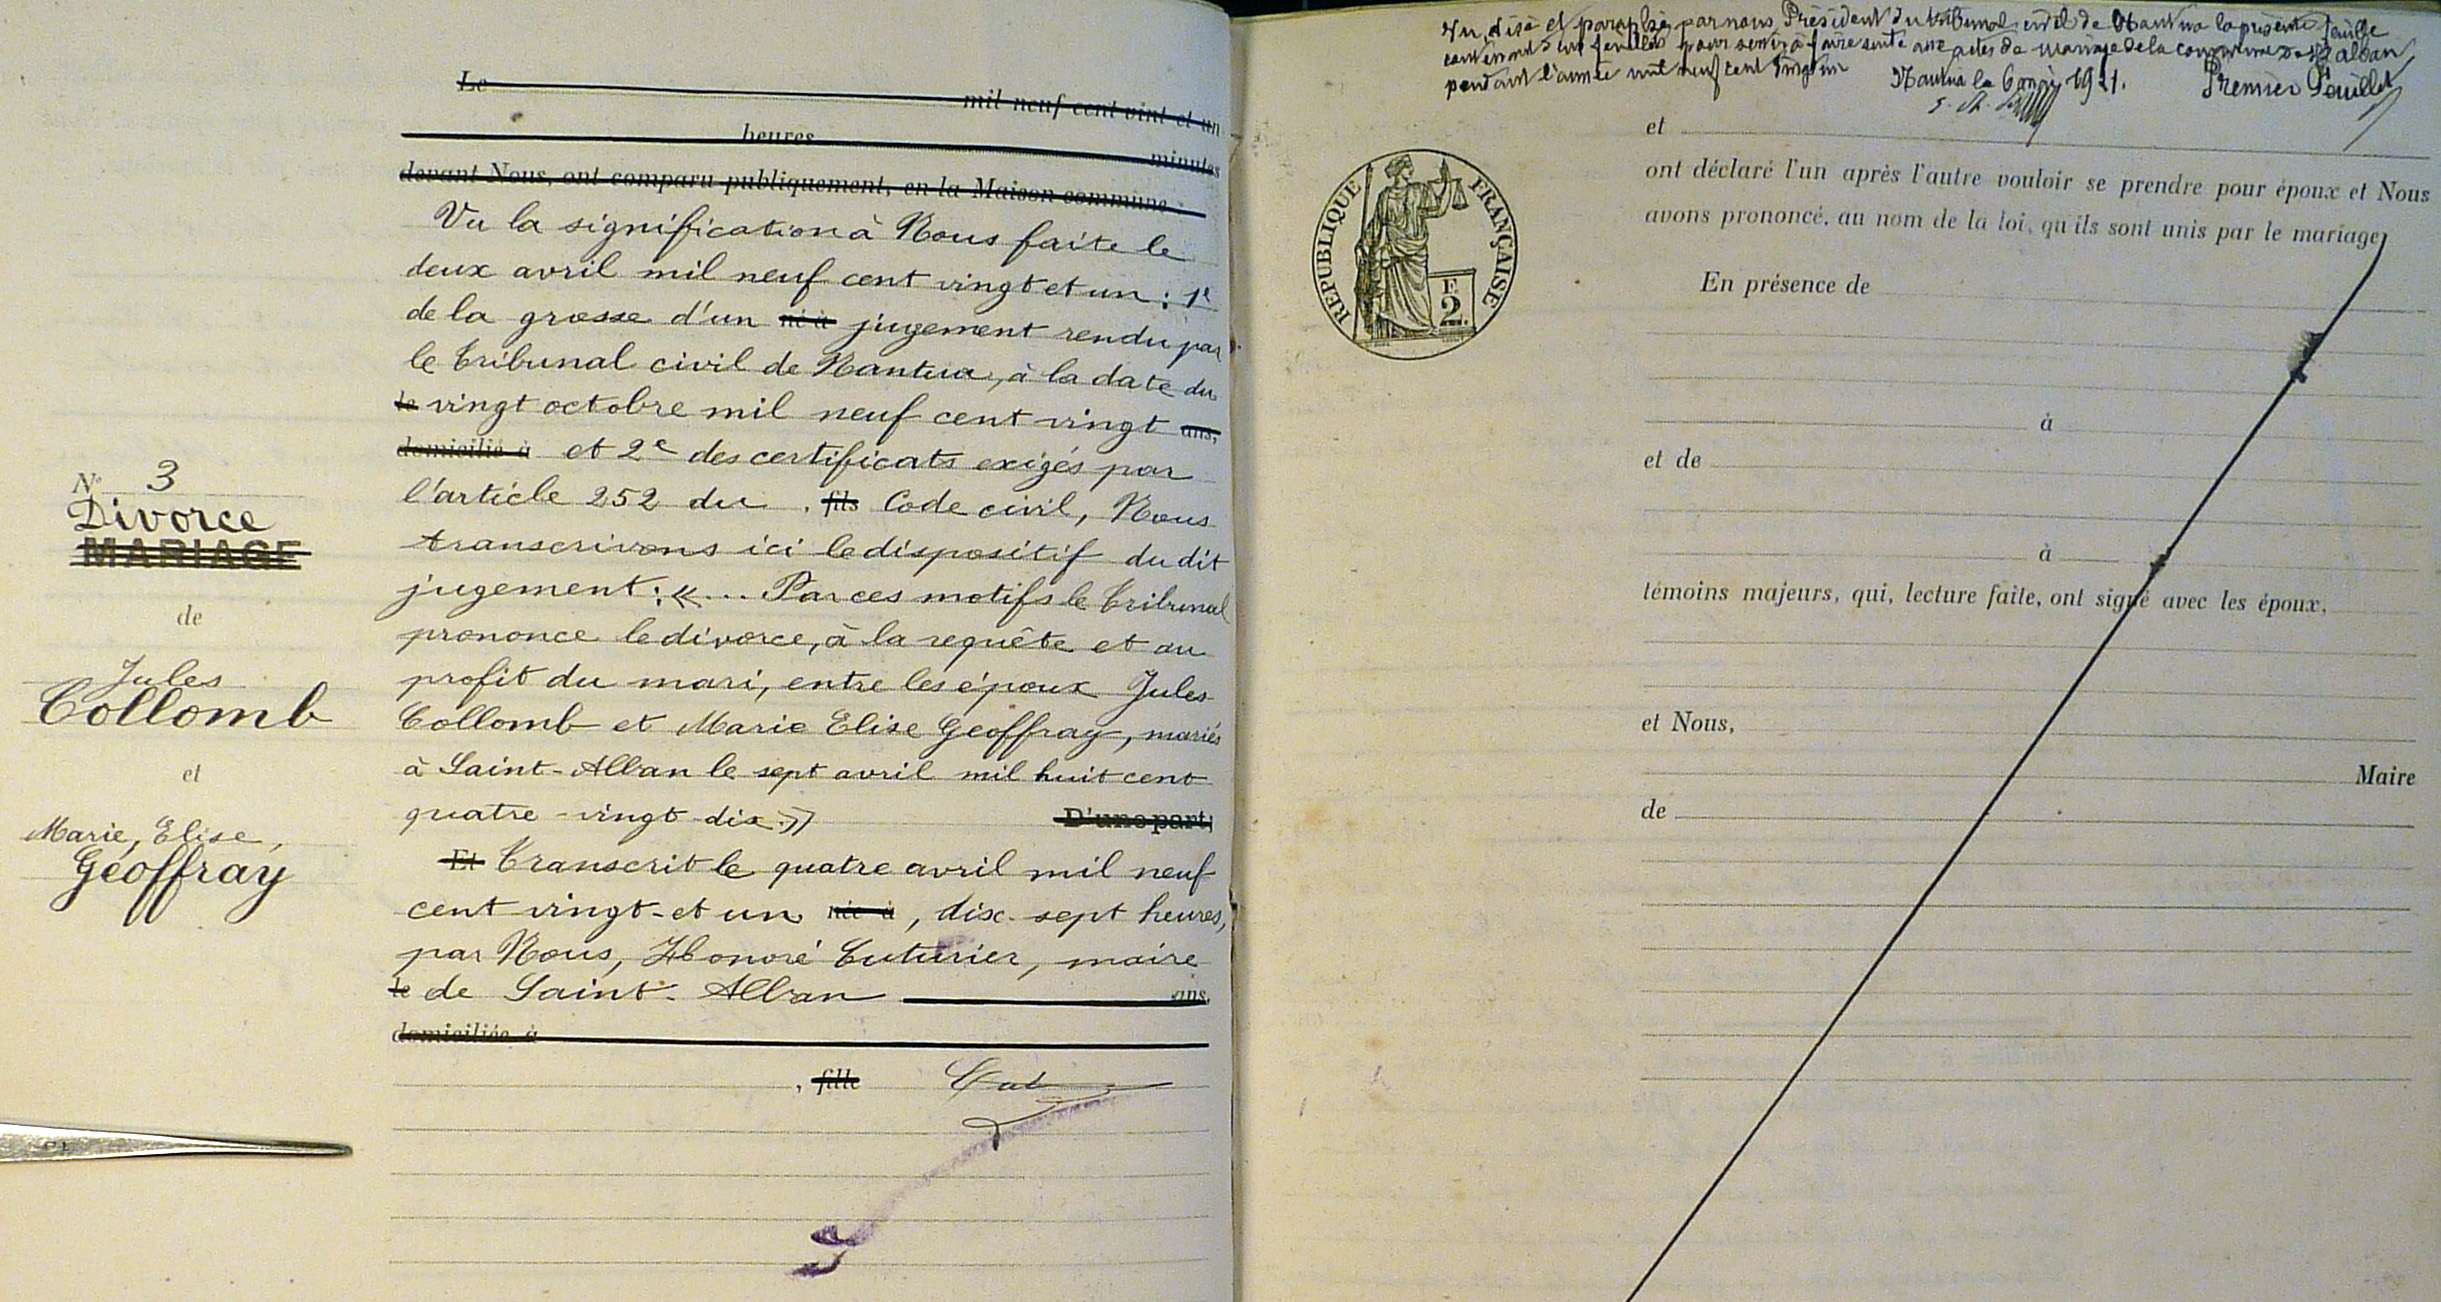 Le mil neuf cent vint et un
heures minutes
devant Nous, ont comparu publiquement, en la Maison commune
Vu la signification à Nous faite le
deux avril mil neuf cent vingt et un : 1e
de la grosse d'un né à jugement rendu par
le tribunal civil de Nantua, à la date du
le vingt octobre mil neuf cent vingt ans,
domicilié à et 2e des certificats exigés par
l'article 252 du , fils Code civil, Nous
transcrivons ici le dispositif du dit
jugement : «... Par ces motifs le tribunal
prononce le divorce, à la requête et au
profit du mari, entre les époux Jules
Collomb et Marie Elise Geoffray, mariés
à Saint-Alban le sept avril mil huit cent
quatre-vingt-dix.» D'une part;
Et Transcrit le quatre avril mil neuf
cent vingt-et un née à, dix-sept heures,
par Nous, Honoré Cuturier, maire
le de Saint-Alban ans,
domiciliée à
, fille Cut
No 3
Divorce
MARIAGE
de
Jules
Collomb
et
Marie, Elise,
Geoffray
Vu, visé et paraphé par nous Président du tribunal civil de Nantua la présente feuille
contenant feuillets pour servir à faire suite aux actes de mariage de la commune de St Alban
pendant l'année mil neuf cent vingt un Nantua le 6 1921. Premier Feuillet
REPUBLIQUE FRANÇAISE
F.
2.
et
ont déclaré l'un après l'autre vouloir se prendre pour époux et Nous
avons prononcé, au nom de la loi, qu'ils sont unis par le mariage
En présence de
à
et de
à
témoins majeurs, qui, lecture faite, ont signé avec les époux,
et Nous,
Maire
de